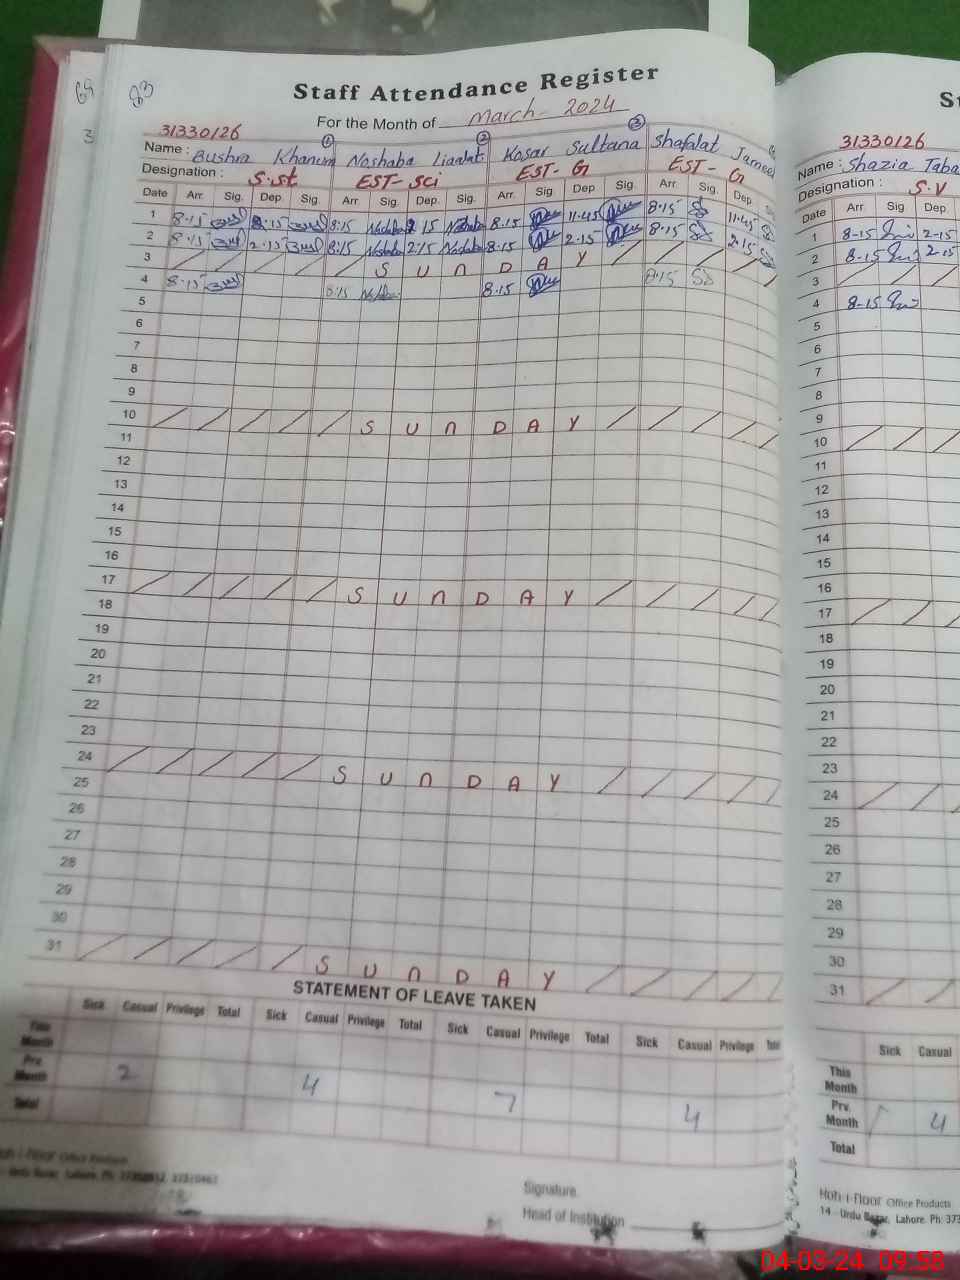 69 83
3
Staff Attendance Register
For the Month of March - 2024
31330126
① ② ③
Name : Bushra Khanum Noshaba Liaqat Kosar Sultana Shafalat Jameel
Designation : S.St EST- Sci EST- G EST - G
Date Arr. Sig. Dep. Sig. Arr. Sig. Dep. Sig. Arr. Sig. Dep. Sig. Arr. Sig. Dep.
1 8-15 2-15 8:15 Noshaba 2 15 Noshaba 8.15 11.45 8.15 11.45
2 8-15 2-15 8:15 Noshaba 2:15 Noshaba 8.15 2.15 8.15 2.15
3 S U N D A Y
4 8-15 8:15 8.15 8.15
5
6
7
8
9
10 S U N D A Y
11
12
13
14
15
16
17 S U N D A Y
18
19
20
21
22
23
24 S U N D A Y
25
26
27
28
29
30
31 S U N D A Y
STATEMENT OF LEAVE TAKEN
Sick Casual Privilege Total Sick Casual Privilege Total Sick Casual Privilege Total Sick Casual Privilege Total
This Month
Prv. Month 2 4 7 4
Total
Office Products
Urdu Bazar, Lahore. Ph:
Signature
Head of Institution
St
31330126
Name : Shazia Taba
Designation : S.V
Date Arr. Sig Dep.
1 8-15 2-15
2 8-15 2-15
3
4 8-15
5
6
7
8
9
10
11
12
13
14
15
16
17
18
19
20
21
22
23
24
25
26
27
28
29
30
31
Sick Casual
This Month
Prv. Month 4
Total
Roh-i-Floor Office Products
14 - Urdu Bazar, Lahore. Ph: 373
04-03-24 09:58